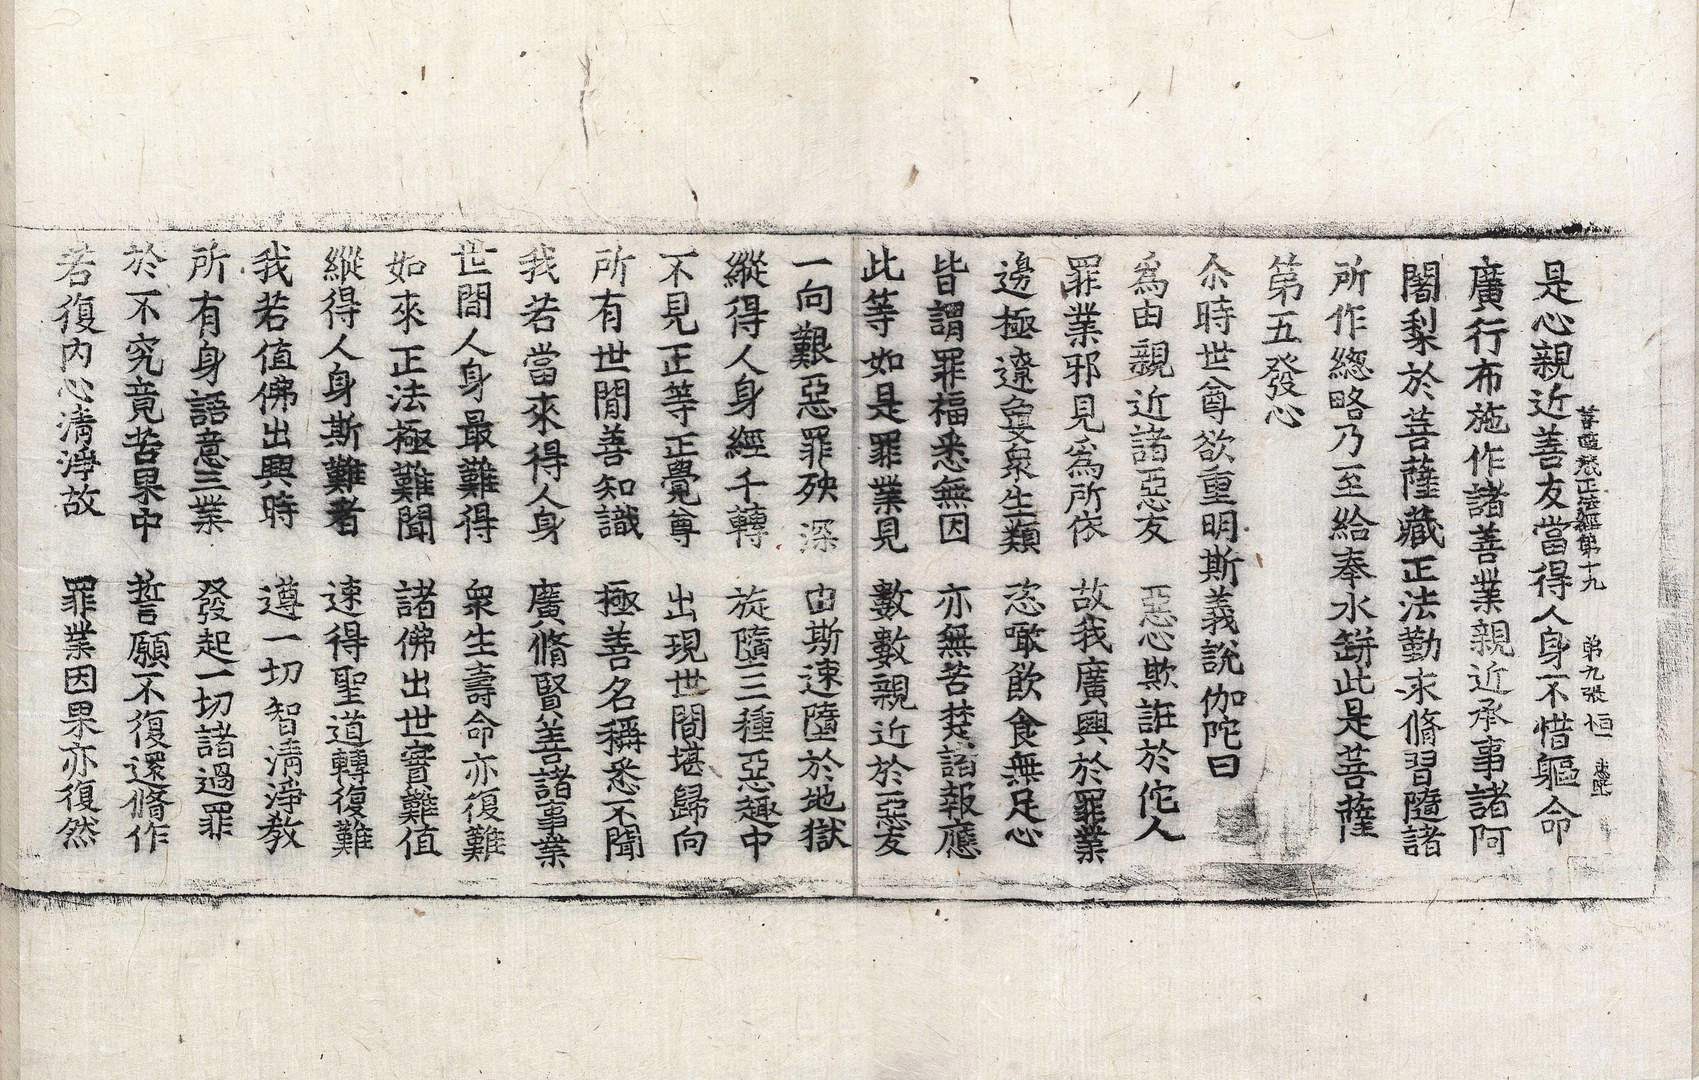 菩薩藏正法經第十九　第九張　恒
是心親近善友當得人身不惜軀命
廣行布施作諸善業親近承事諸阿
闍梨於菩薩藏正法勤求脩習隨諸
所作緫略乃至給奉水缾此是菩薩
第五發心
尒時世尊欲重明斯義說伽陀曰
爲由親近諸惡友　惡心欺誑於佗人
罪業邪見爲所依　故我廣興於罪業
邊極遼敻衆生類　恣噉飲食無足心
皆謂罪福悉無因　亦無苦楚諸報應
此等如是罪業見　數數親近於惡友
一向艱惡罪殃深　由斯速墮於地獄
縱得人身經千轉　旋墮三種惡趣中
不見正等正覺尊　出現世間堪歸向
所有世間善知識　極善名稱悉不聞
我若當來得人身　廣脩賢善諸事業
世間人身最難得　衆生壽命亦復難
如來正法極難聞　諸佛出世實難值
縱得人身斯難者　速得聖道轉復難
我若值佛出興時　遵一切智淸淨教
所有身語意三業　發起一切諸過罪
於不究竟苦果中　誓願不復還脩作
若復內心淸淨故　罪業因果亦復然